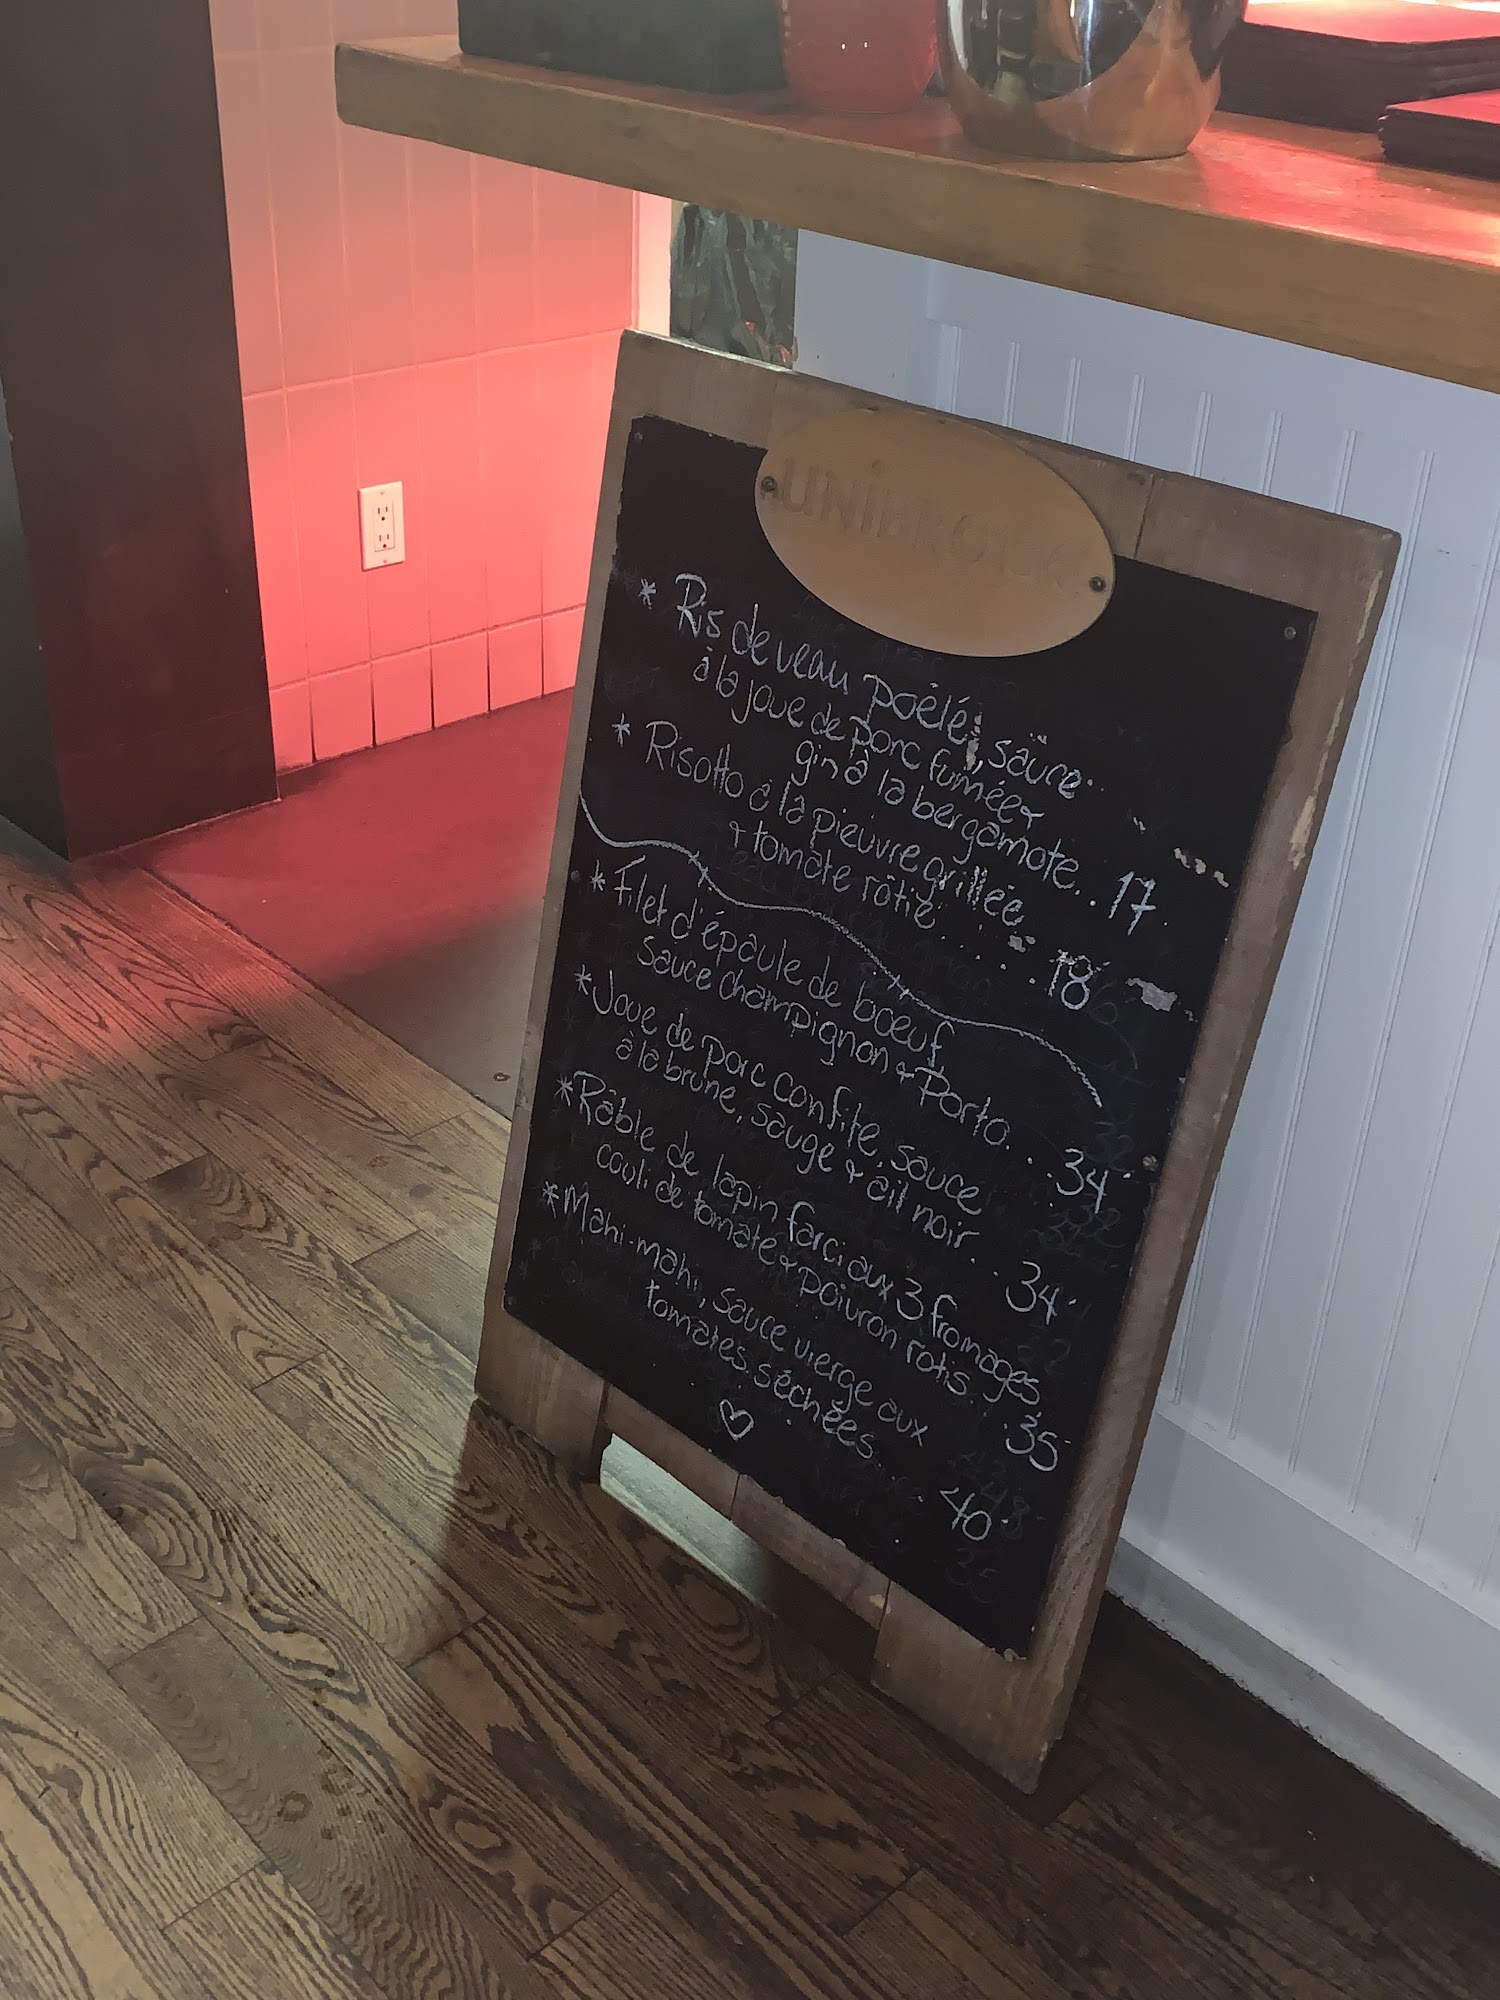 UNIBROUE
* Ris de veau poêlé, sauce
à la joue de porc fumée &
gin à la bergamote... 17
* Risotto à la pieuvre grillée
& tomate rôtie...... 18
* Filet d'épaule de boeuf,
sauce champignon & Porto... 34
* Joue de porc confite, sauce
à la brune, sauge & ail noir... 34
* Râble de lapin farci aux 3 fromages
couli de tomate & poivron rotis... 35
* Mahi-mahi, sauce vierge aux
tomates séchées.... 40